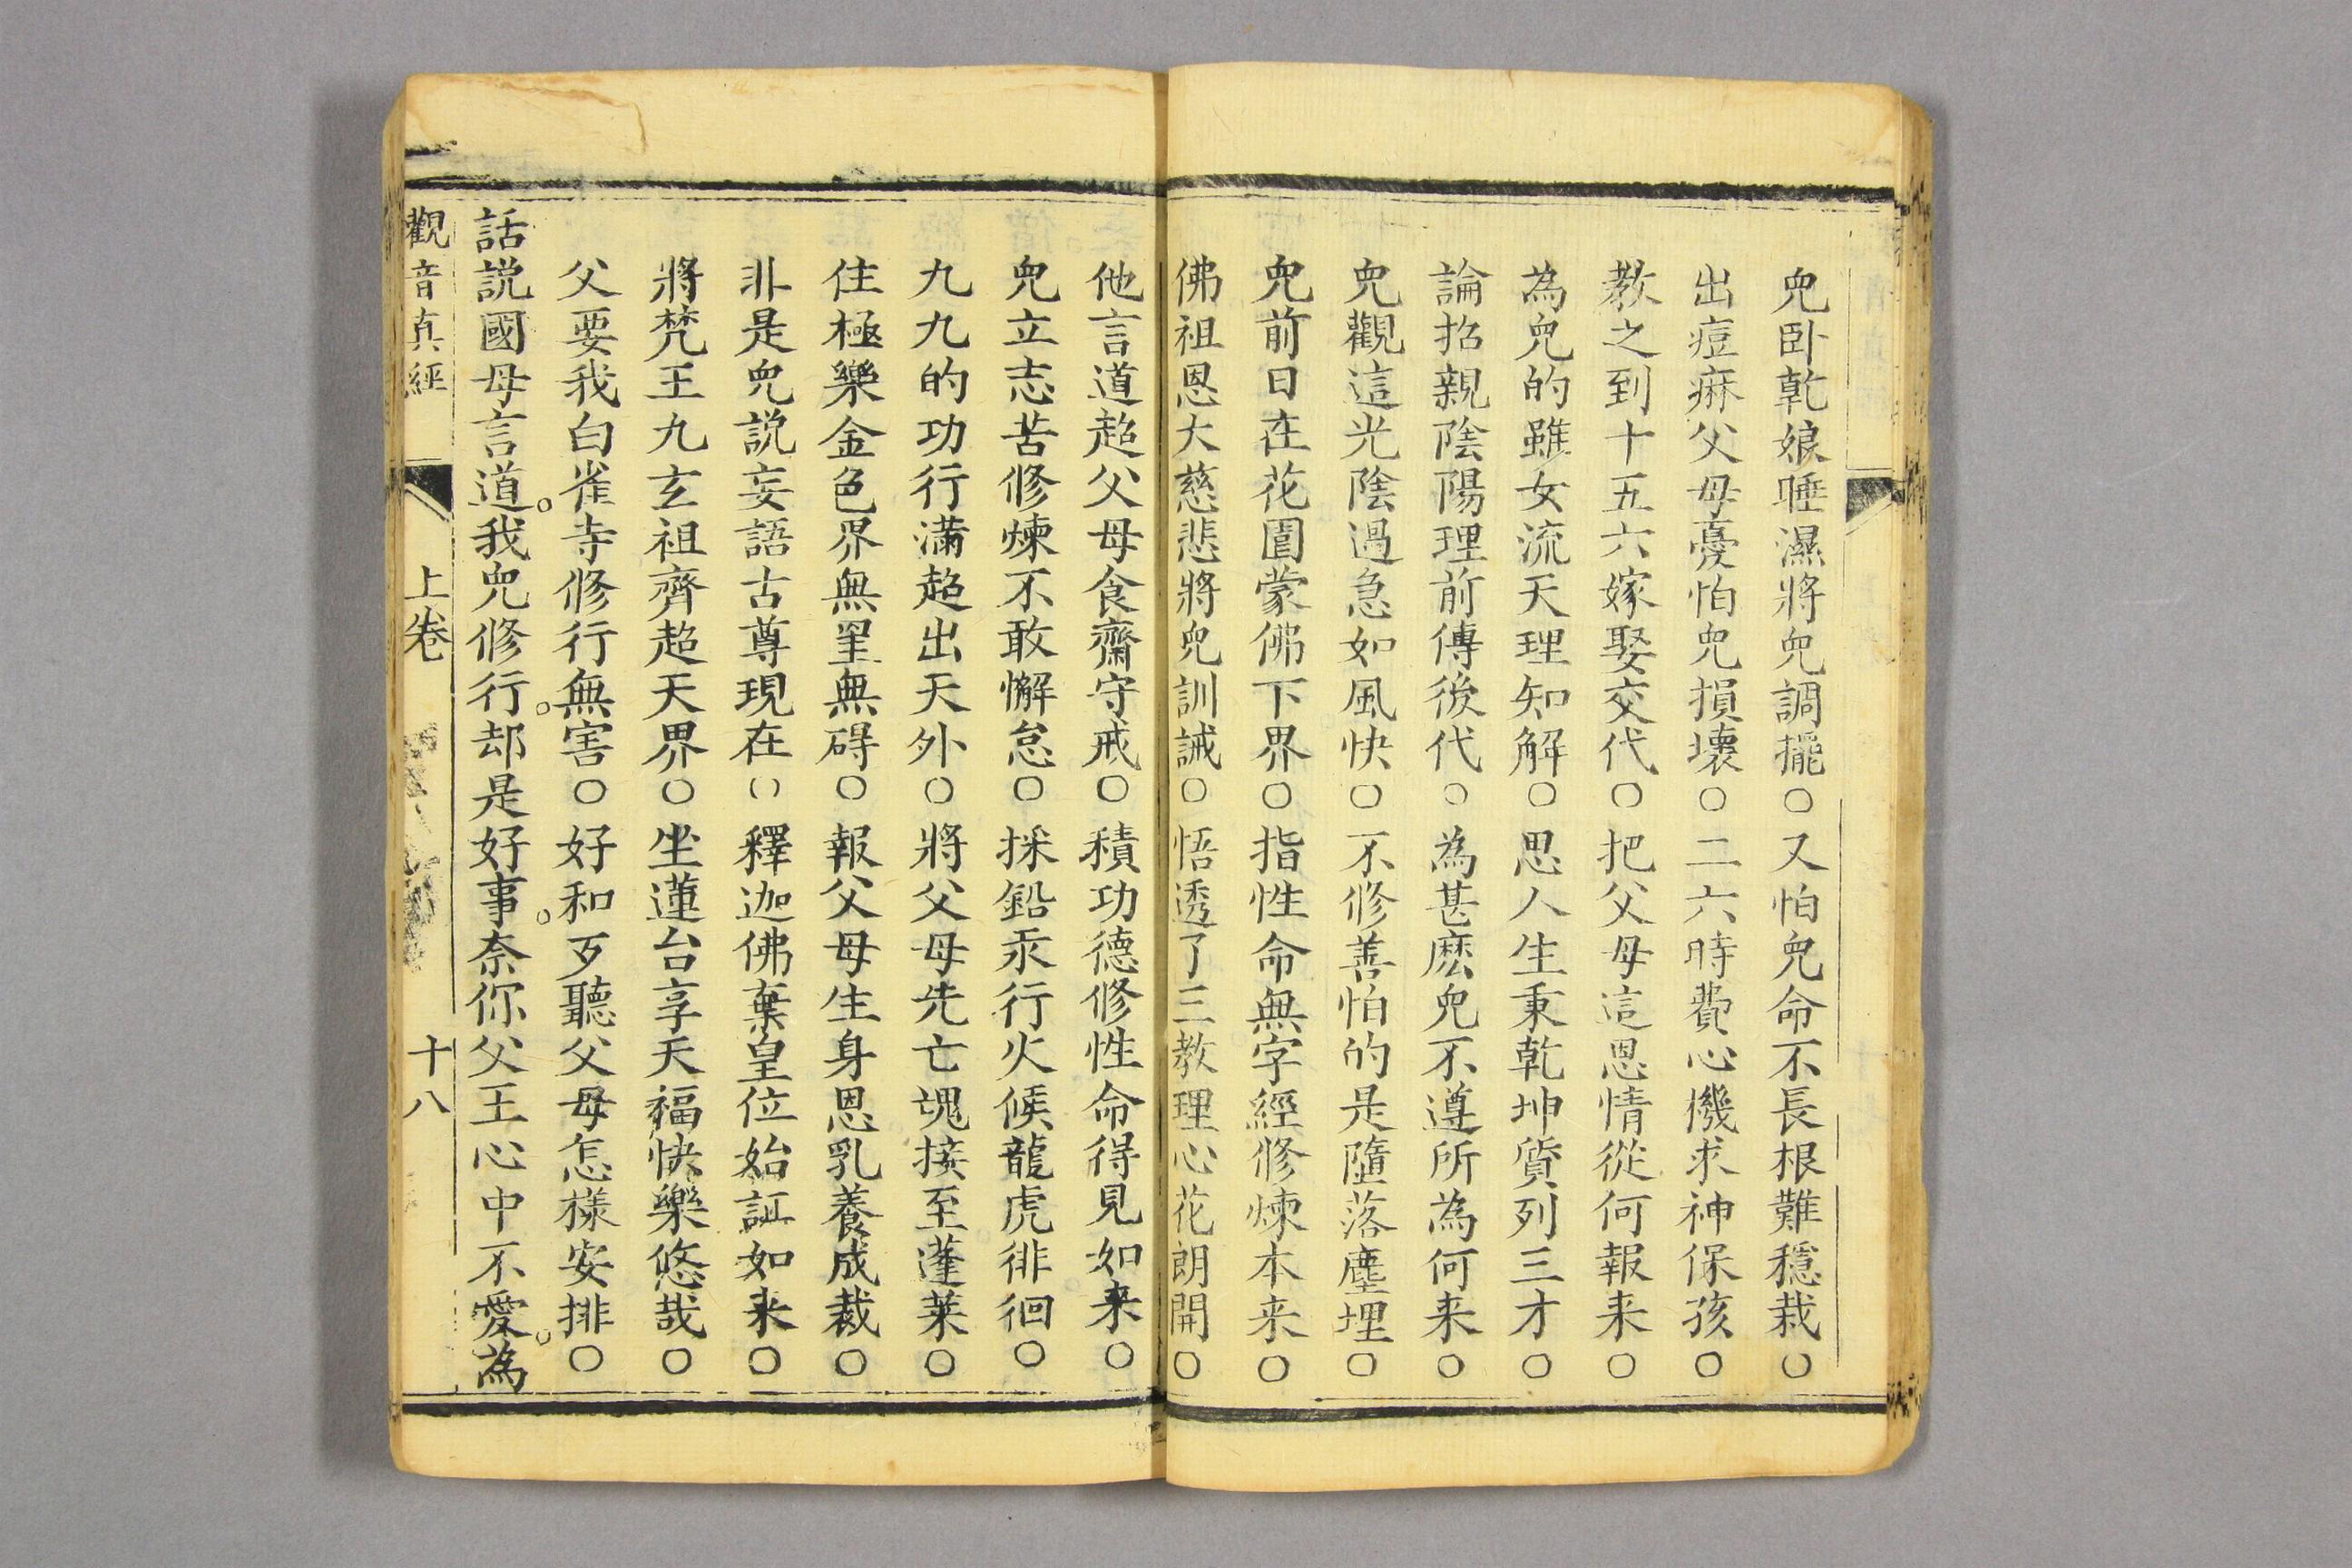 兒卧乾娘睡濕將兒調擺○又怕兒命不長根難穩栽○
出痘痳父母憂怕兒損壞○二六時費心機求神保孩○
教之到十五六嫁娶交代○把父母這恩情從何報来○
為兒的雖女流天理知解○思人生秉乾坤質列三才○
論招親陰陽理前傳後代○為甚麽兒不遵所為何来○
兒觀這光陰過急如風快○不修善怕的是墮落塵埋○
兒前日在花園蒙佛下界○指性命無字經修煉本来○
佛祖恩大慈悲將兒訓誡○悟透了三教理心花朗開○
他言道超父母食齋守戒○積功德修性命得見如来○
兒立志苦修煉不敢懈怠○採鉛汞行火候龍虎徘徊○
九九的功行滿超出天外○將父母先亡魂接至蓬莱○
住極樂金色界無罣無碍○報父母生身恩乳養成裁○
非是兒說妄語古尊現在○釋迦佛棄皇位始証如来○
將梵王九玄祖齊超天界○坐蓮台享天福快樂悠哉○
父要我白雀寺修行無害○好和歹聽父母怎樣安排○
話説國母言道。我兒修行。却是好事。奈你父王心中不愛。為
觀音真經 上卷 十八